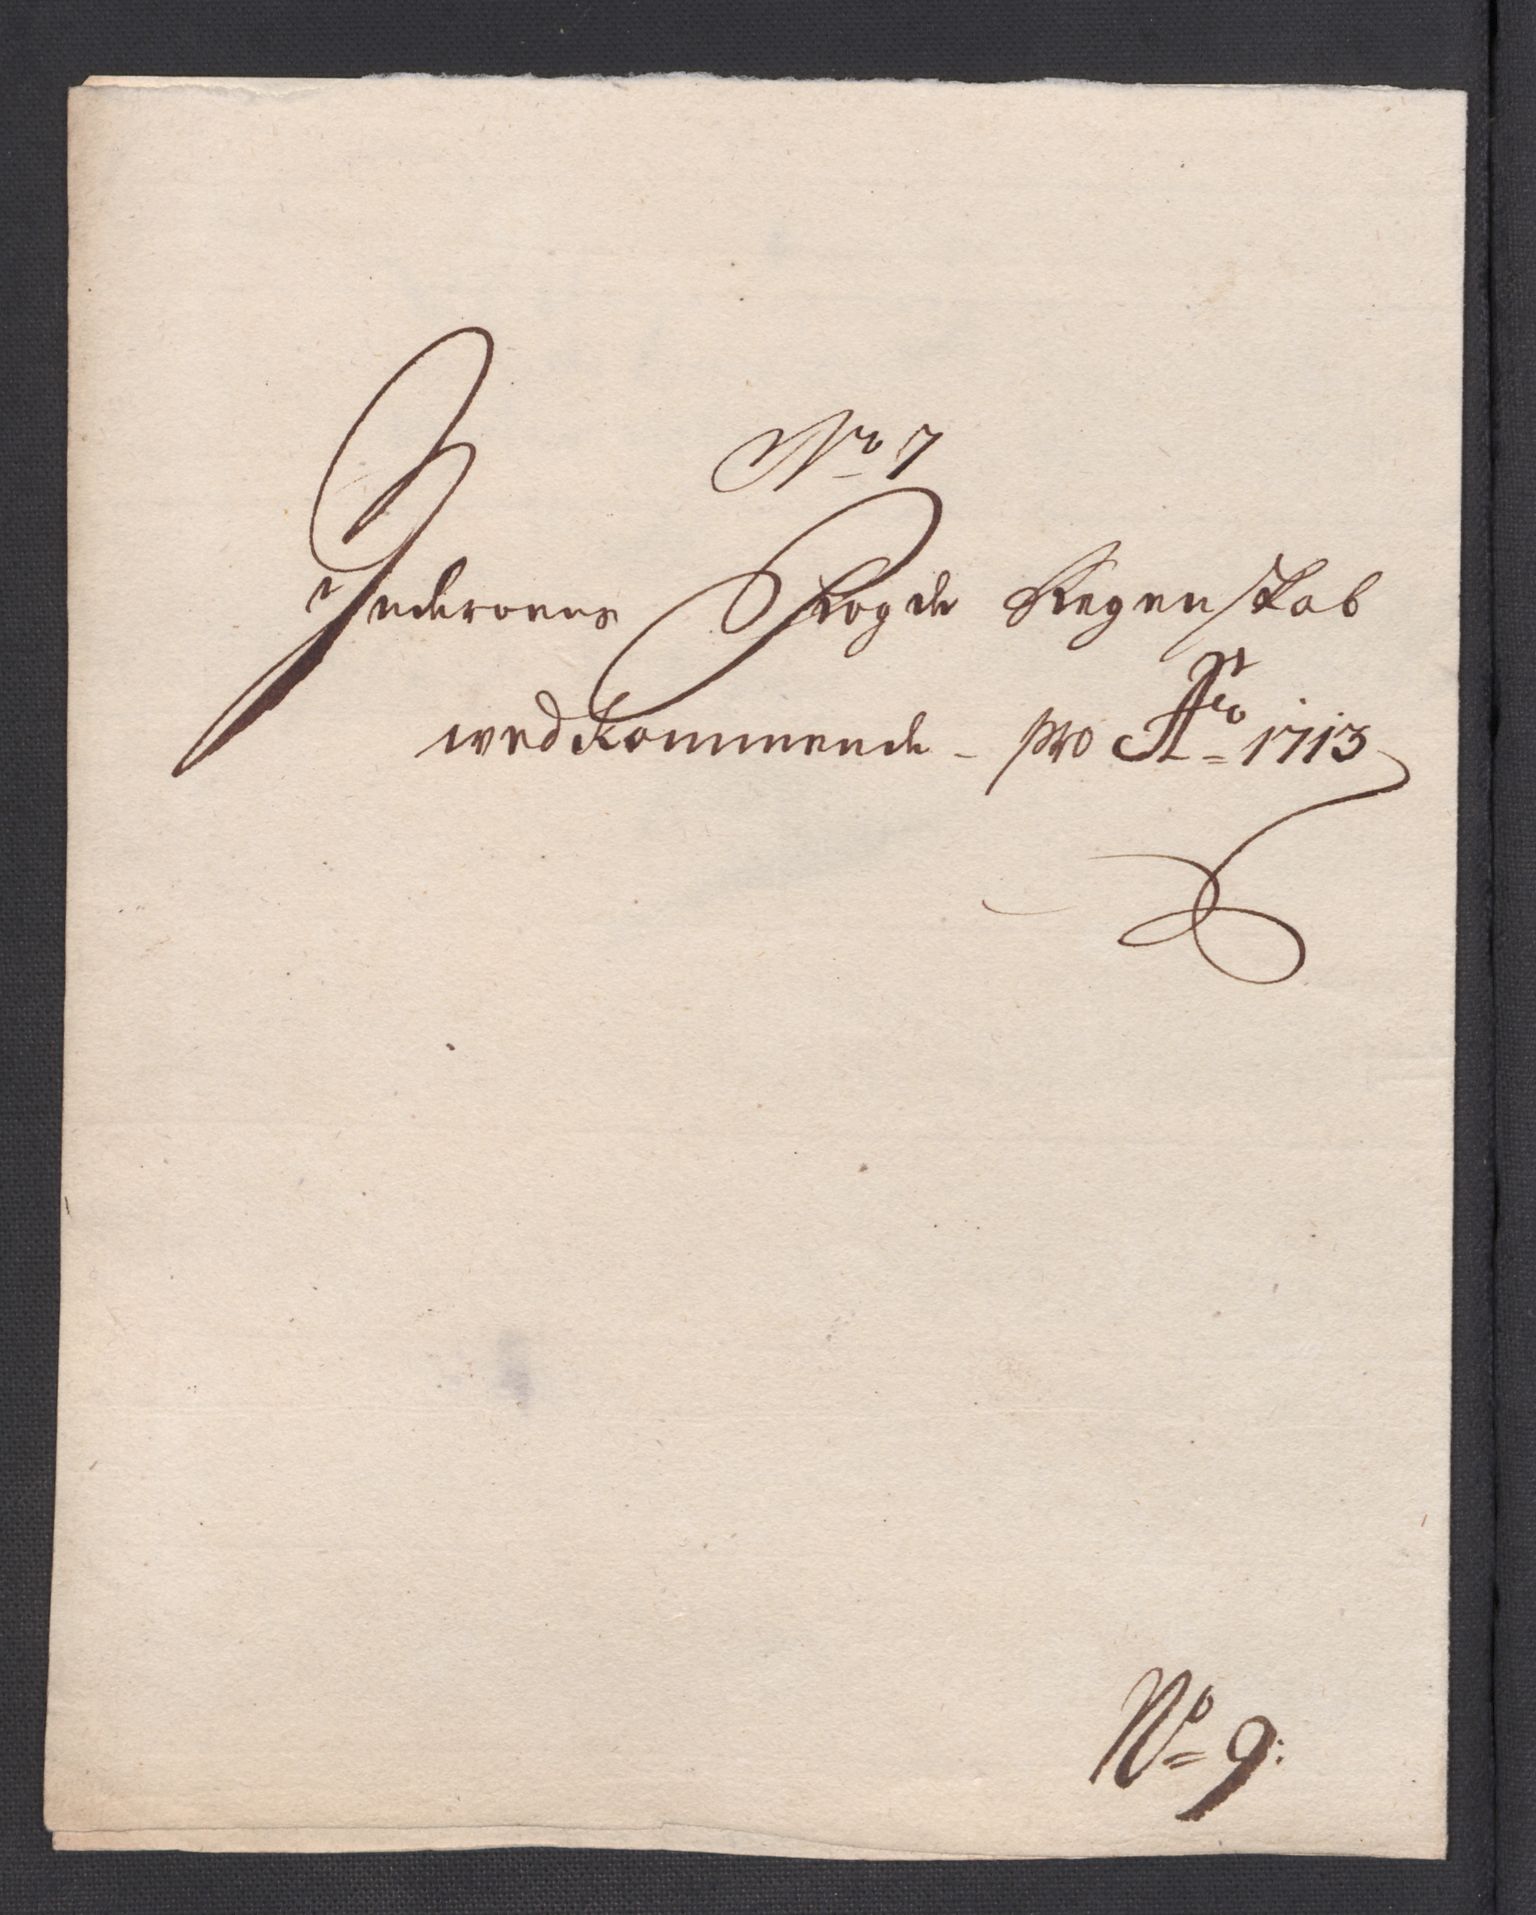 No 7
Inderoens Fogde Regenskab
wedkommende - pro Ao 1713
No 9: